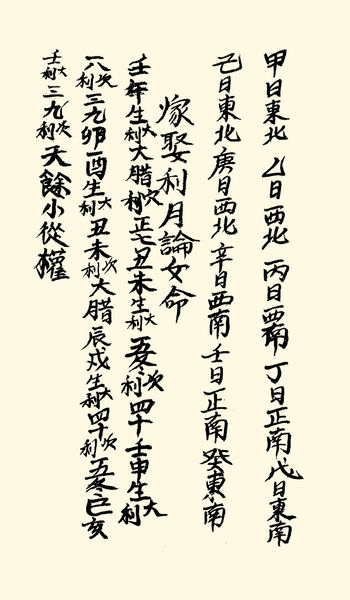 甲日東北 乙日西北 丙日西南 丁日正南 戊日東南
己日東北 庚日西北 辛日西南 壬日正南 癸東南
嫁娶利月論女命
壬午生大利大腊次利正七丑未生大利五冬次利四十壬申生大利
六次利三九卯酉生大利丑未次利大腊辰戌生大利四十次利五冬巳亥
壬大利三九次利天餘小從權